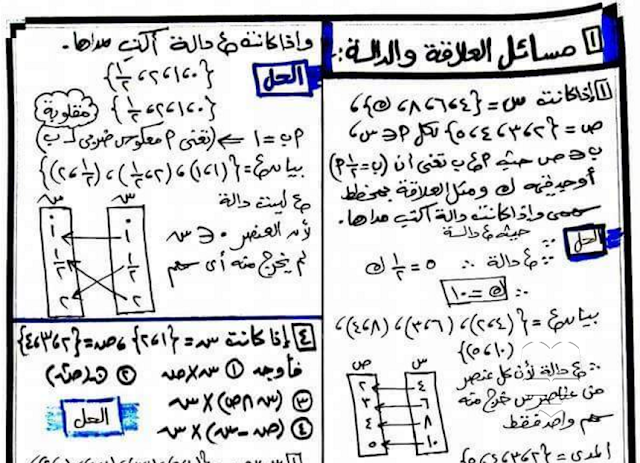 ١ مسائل العلاقة والدالة:
١ إذا كانت س = {٤، ٦، ٨، ك}،
ص = {٢، ٣، ٤، ٥} لكل ٩ ∈ س،
ب ∈ ص حيث ٩ ع ب تعنى أن (ب = ١/٢ ٩)
أوجد قيمة ك ومثل العلاقة بمخطط
سهمى وإذا كانت دالة أكتب مداها.
الحل
∵ ع دالة ∴ ٥ = ١/٢ ك
∴ ك = ١٠
بيان ع = {(٤، ٢)، (٦، ٣)، (٨، ٤)،
(١٠، ٥)}
∵ ع دالة لأن كل عنصر
من عناصر س خرج منه
سهم واحد فقط
س ص
٤ ٢
٦ ٣
٨ ٤
١٠ ٥
المدى = {٢، ٣، ٤، ٥}
وإذا كانت ع دالة أكتب مداها.
الحل
{٠، ١، ٢، ١/٢}
{٠، ١، ٢، ١/٢}
مقلوبة
٩ ب = ١ ⇐ (تعنى ٩ معكوس ضربى لـ ب)
بيان ع = {(١، ١)، (٢، ١/٢)، (١/٢، ٢)}
ع ليست دالة
لأن العنصر ٠ ∈ س
لم يخرج منه أى سهم
س س
٠ ٠
١ ١
١/٢ ١/٢
٢ ٢
٤ إذا كانت س = {١، ٢}، ص = {٢، ٣، ٤}
فأوجد ١ س × ص ٢ ن(ص²)
٣ (س ∩ ص) × س
٤ (ص − س) × س
الحل